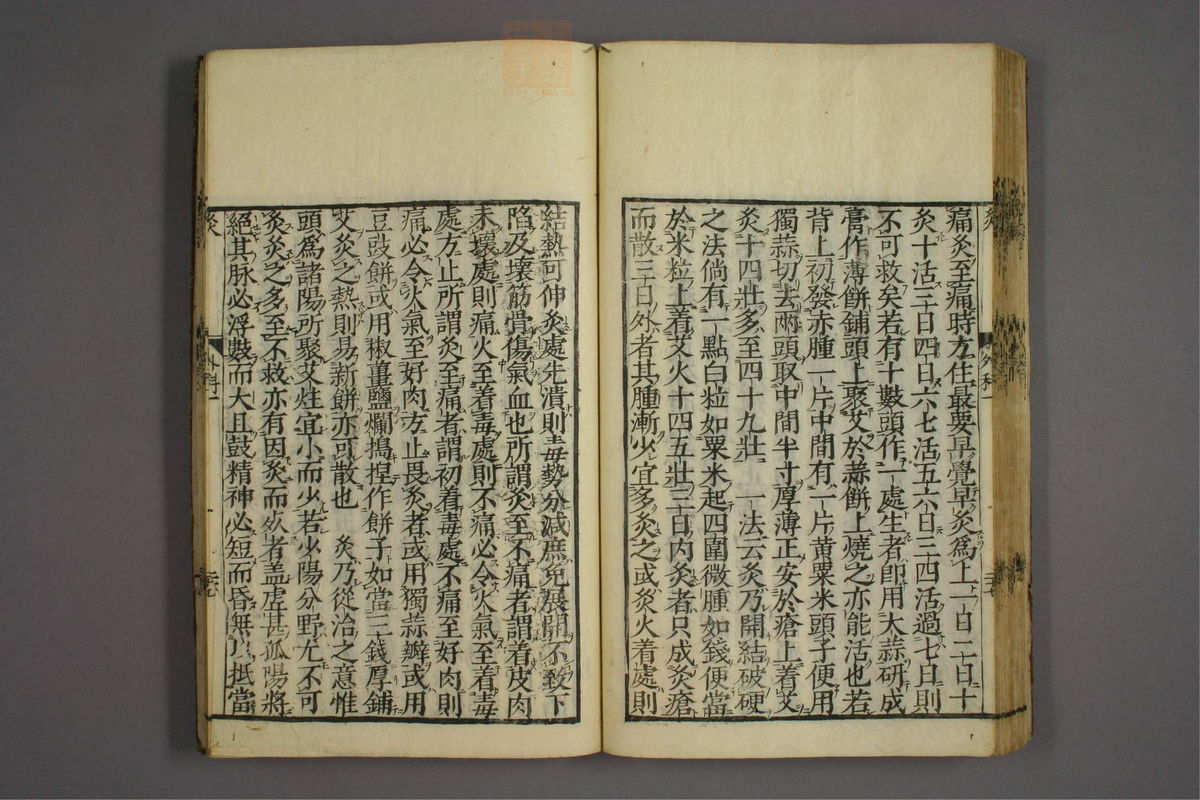 痛灸至痛時方住最要早覺早灸爲上一日二日十
灸十活三日四日六七活五六日三四活過七日則
不可救矣若有十數頭作一處生者卽用大蒜研成
膏作薄餅鋪頭上聚艾於蒜餅上燒之亦能活也若
背上初發赤腫一片中間有一片黃粟米頭子便用
獨蒜切去兩頭取中間半寸厚薄正安於瘡上着艾
灸十四壯多至四十九壯　一法云灸乃開結破硬
之法倘有一點白粒如粟米起四圍微腫如錢便當
於米粒上着艾火十四五壯三日內灸者只成灸瘡
而散三日外者其腫漸少宜多灸之或灸火着處則
外科一
結熱可伸灸處先潰則毒勢分減庶免展開不致下
陷及壞筋骨傷氣血也所謂灸至不痛者謂着皮肉
未壞處則痛火至着毒處則不痛必令火氣至着毒
處方止所謂灸至痛者謂初着毒處不痛至好肉則
痛必令火氣至好肉方止畏灸者或用獨蒜瓣或用
豆豉餅或用椒薑鹽爛搗捏作餅子如當三錢厚鋪
艾灸之熱則易新餅亦可散也　灸乃從治之意惟
頭爲諸陽所聚艾炷宜小而少若少陽分野尤不可
灸灸之多至不救亦有因灸而死者盖虛甚孤陽將
絕其脉必浮數而大且鼓精神必短而昏無以抵當
外科一